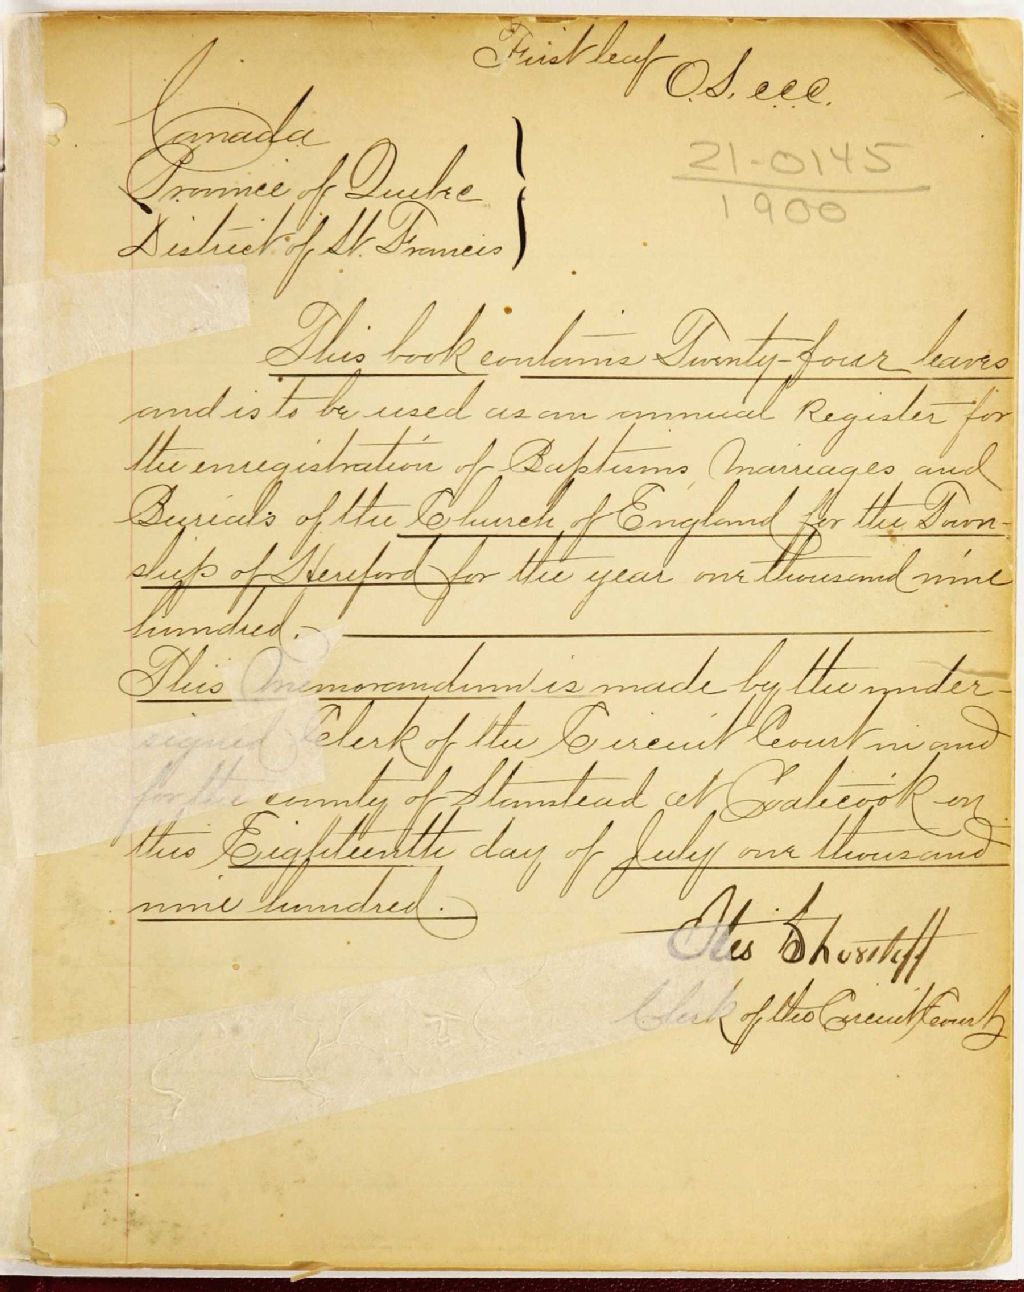 First leaf O.S. c.c.c.
21-0145
1900
Canada
Province of Quebec
District of St. Francis
This book contains Twenty-four leaves
and is to be used as an annual Register for
the enregistration of Baptisms, Marriages and
Burials of the Church of England for the Town-
ship of Hereford for the year one thousand nine
hundred.
This Memorandum is made by the under-
signed Clerk of the Circuit Court in and
for the county of Stanstead at Coaticook on
this Eighteenth day of July one thousand
nine hundred.
Otis Shurtleff
Clerk of the Circuit Court